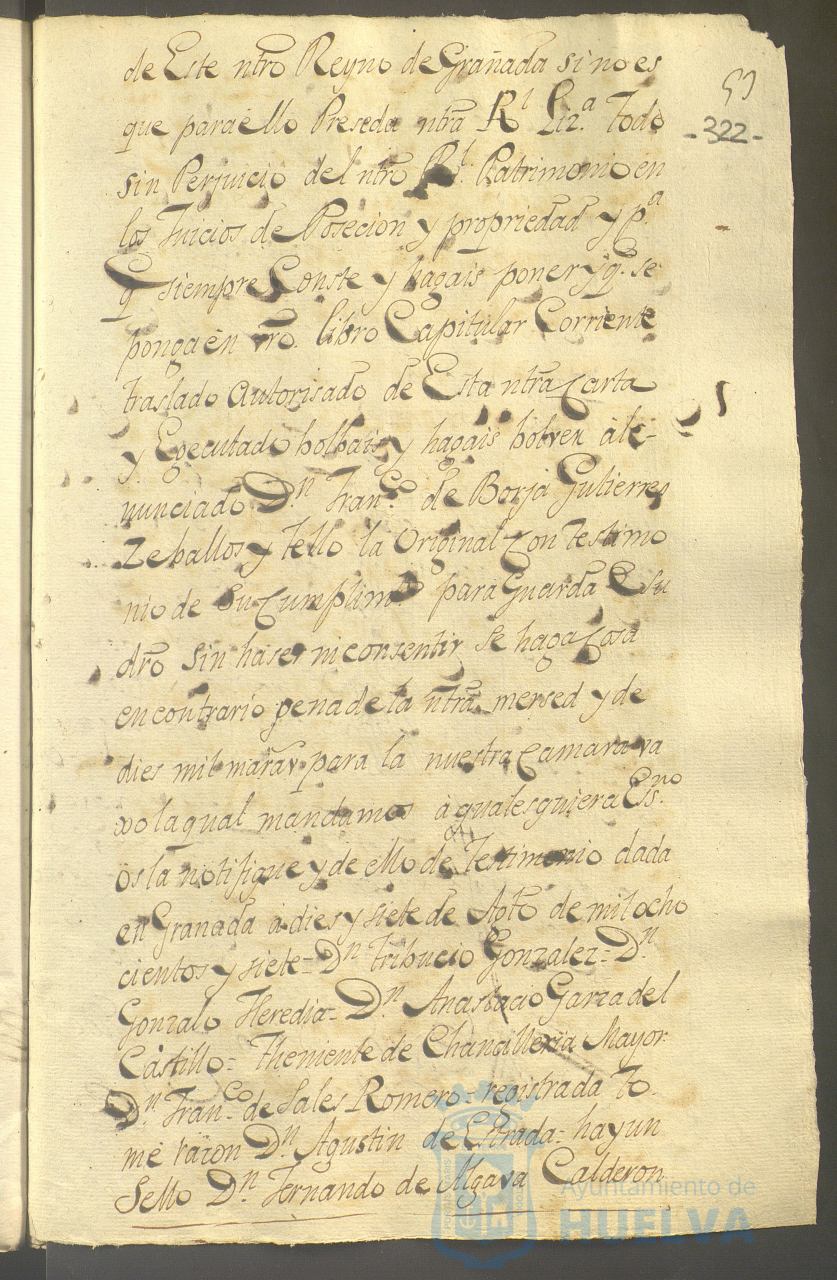 de Este ntro Reyno de Granada sino es
que para ello Preseda ntra Rl Liz.a todo
sin Perjuicio del ntro Rl. Patrimonio en
los Juicios de Posecion y propriedad y p.a
q siempre Conste y hagais poner y q. se
ponga en vro. libro Capitular Corriente
traslado autorisado de Esta ntra Carta
y Egecutado bolbais y hagais bolver al e-
nunciado Dn Fran.co de Borja Gutierres
Zeballos y Tello la Original Con testimo
nio de Su Cumplim.to para Guarda E su
dro sin haser ni consentir se haga Cosa
en contrario pena de la ntra mersed y de
dies mil marav para la nuestra Camara va
xo la qual mandamos à qualesquiera Ess.no
os la notifique y de ello de Testimonio dada
en Granada à dies y siete de Agto de mil ocho
cientos y siete = Dn Tribucio Gonzalez = Dn
Gonzalo Heredia = Dn Anastacio Garza del
Castillo = Theniente de Chancilleria Mayor
Dn Fran.co de Sales Romero = registrada to
mé razon Dn Agustin de Estrada = hay un
Sello Dn Fernando de Algava Calderon
53
-322-
Ayuntamiento de
HUELVA